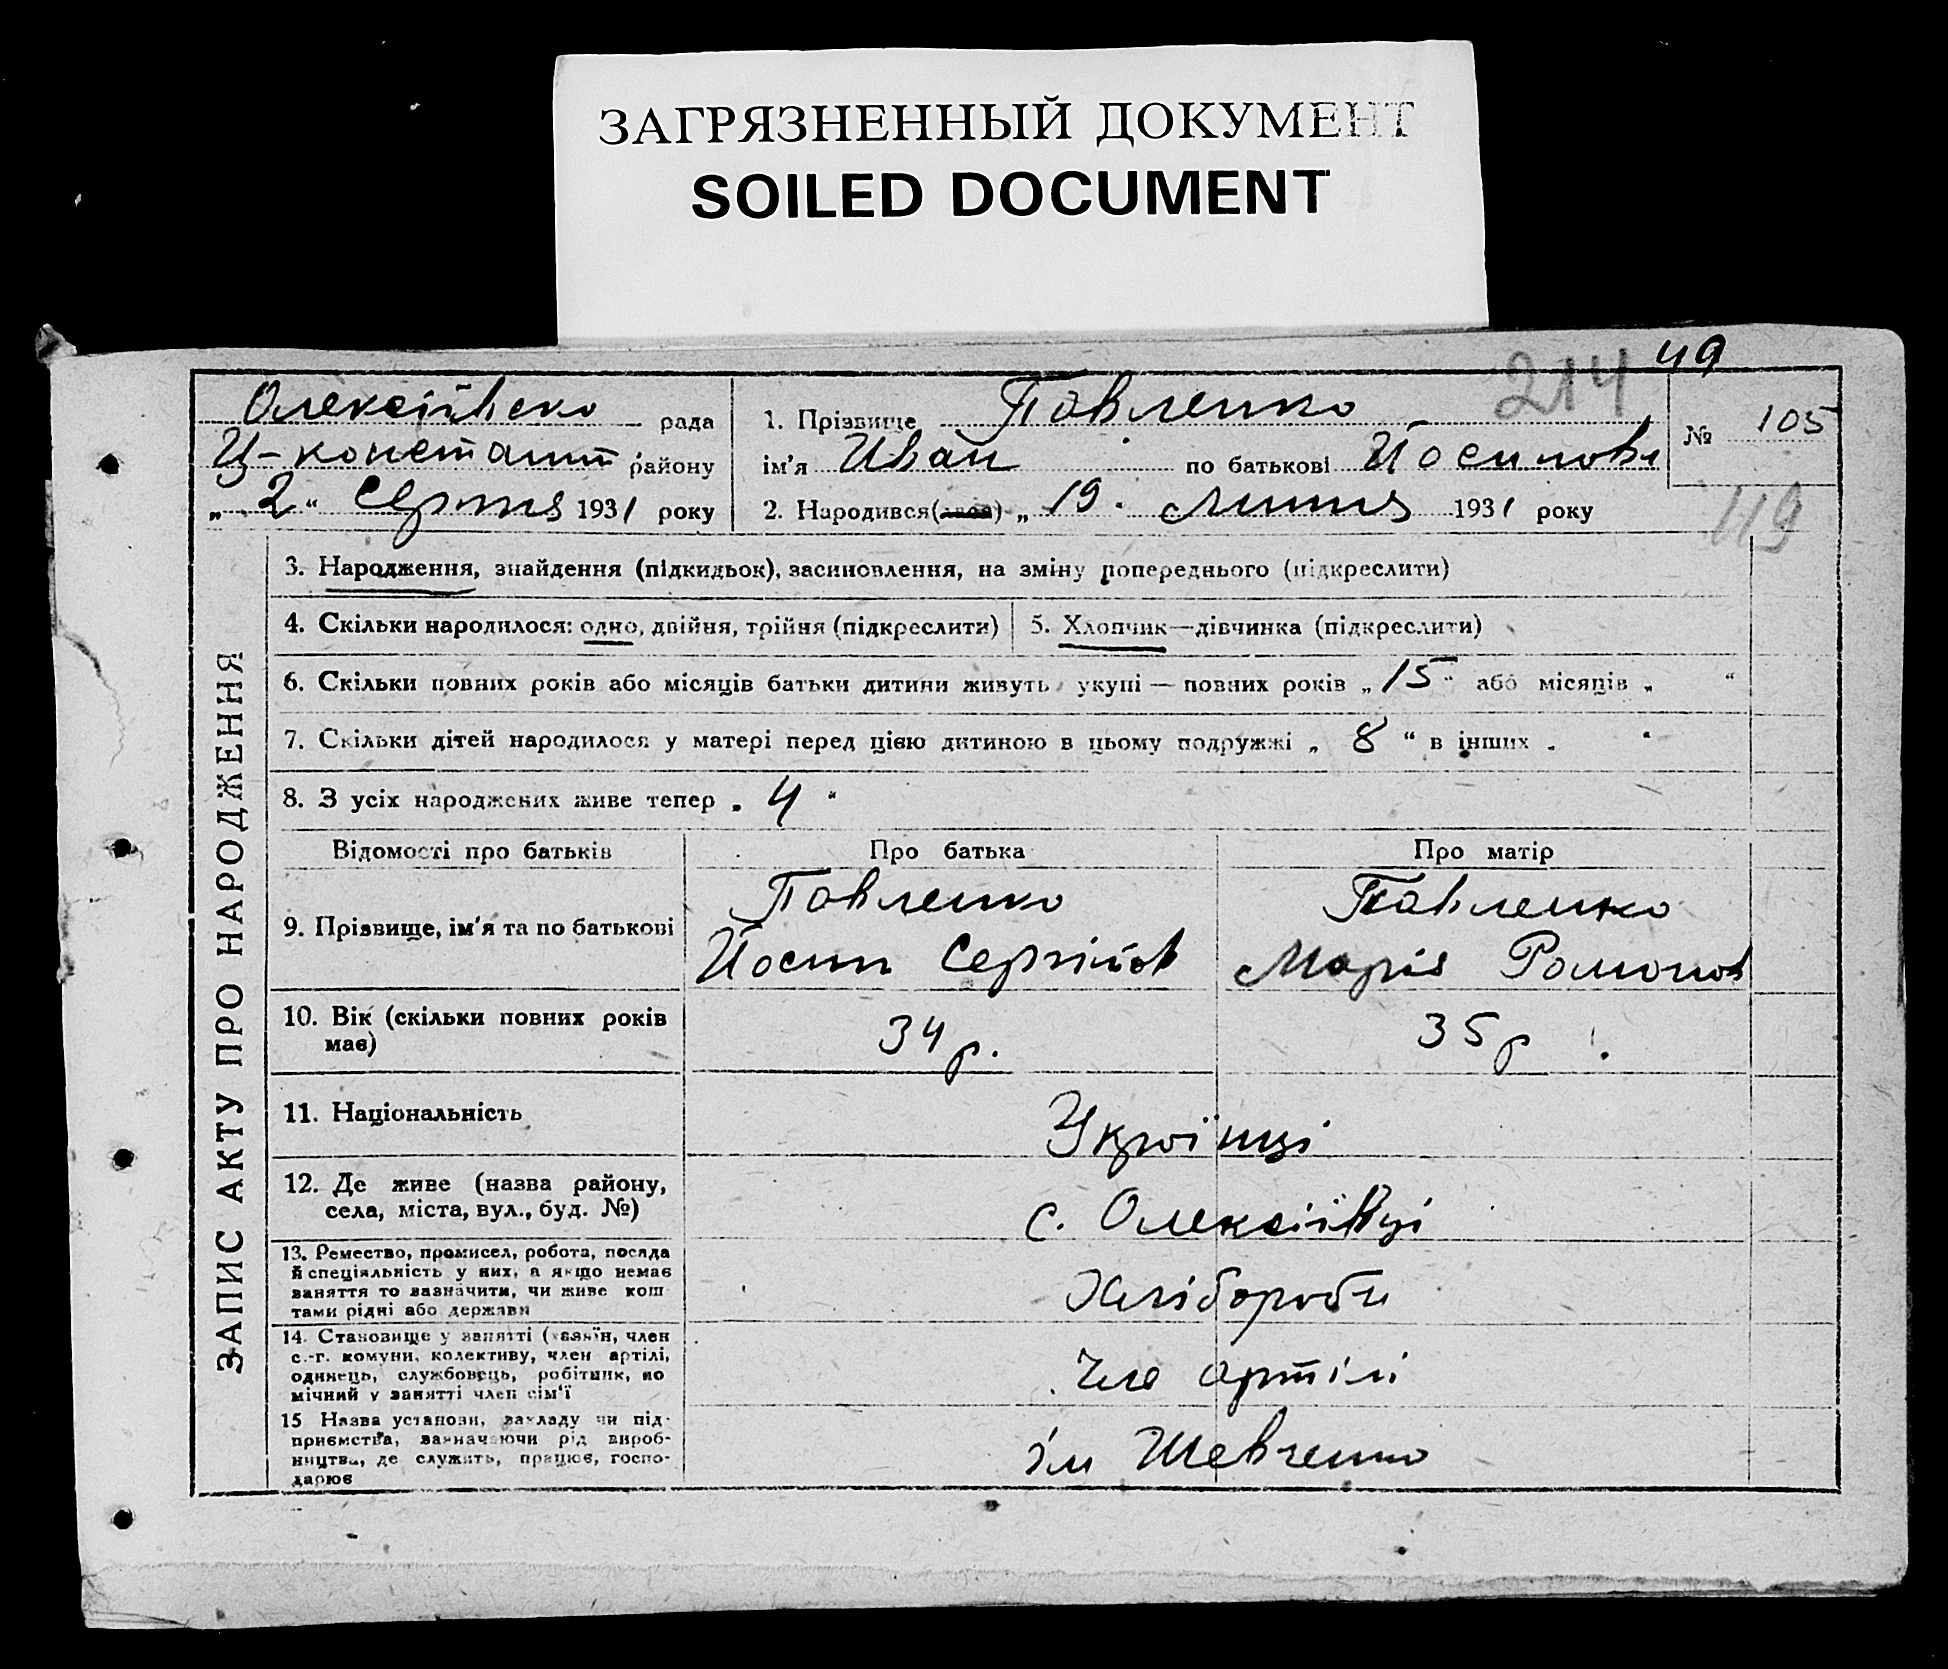 ЗАГРЯЗНЕННЫЙ ДОКУМЕНТ
SOILED DOCUMENT
49
214
Олексіївсько рада
Ц-констант району
„2“ Серпня 1931 року
1. Прізвище Павленко
ім'я Иван по батькові Йосипові
2. Народився „19. Липня 1931 року
№ 105
119
ЗАПИС АКТУ ПРО НАРОДЖЕННЯ
3. Народження, знайдення (підкидьок), засиновлення, на зміну попереднього (підкреслити)
4. Скільки народилося: одно, двійня, трійня (підкреслити)
5. Хлопчик—дівчинка (підкреслити)
6. Скільки повних років або місяців батьки дитини живуть укупі — повних років „15“ або місяців „ “
7. Скільки дітей народилося у матері перед цією дитиною в цьому подружжі „ 8 “ в інших „ “
8. З усіх народжених живе тепер „ 4 “
Відомості про батьків
Про батька
Про матір
9. Прізвище, ім'я та по батькові
Павленко
Йосип Сергійов
Павленко
Марія Романов
10. Вік (скільки повних років
має)
34 р.
35 р.
11. Національність
Українці
12. Де живе (назва району,
села, міста, вул., буд. №)
с. Олексіївці
13. Ремество, промисел, робота, посада
й спеціяльність у них, а якщо немає
заняття то зазначити, чи живе кош
тами рідні або держави
Хлібороби
14. Становище у занятті (хазяїн, член
с.-г. комуни, колективу, член артілі,
одинець, службовець, робітник, по
мічний у занятті член сім'ї
Чле артілі
15 Назва установи, закладу чи під-
приємства, зазначаючи рід вироб-
ництва, де служить, працює, госпо-
дарює
ім Шевченко